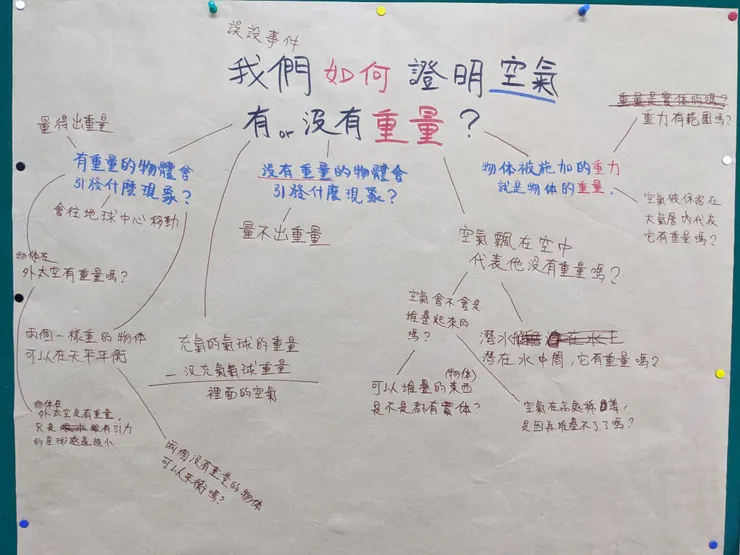 誤設事件
我們如何證明空氣
有or沒有重量？
量得出重量
有重量的物體會
引發什麼現象？
會往地球中心移動
沒有重量的物體會
引發什麼現象？
量不出重量
物体被施加的重力
就是物体的重量.
重量是實体的嗎？
重力有範圍嗎？
空氣被保留在
大氣層內代表
它有重量嗎？
物体在
外太空有重量嗎？
空氣飄在空中
代表他沒有重量嗎？
兩個一樣重的物体
可以在天平平衡
充氣的氣球的重量
－沒充氣氣球重量
裡面的空氣
空氣會不會是
堆疊起來的
嗎？
潛水
在水上
潛在水中間，它有重量嗎？
(物体)
可以堆疊的東西
是不是都有實体？
空氣在高處稀薄，
是因為堆疊不了了嗎？
物体在
外太空是有重量，
只是 沒有引力
的星球感應極小
兩個沒有重量的物体
可以平衡嗎？